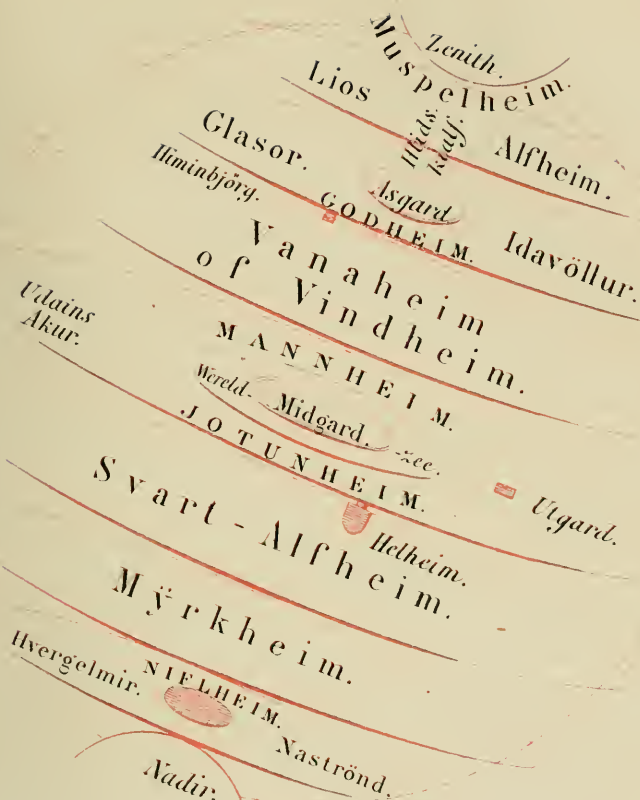 Zenith.
Muspelheim.
Lios Alfheim.
Hlids.
kialf.
Glasor.
Asgard.
Himinbjörg.
GODHEIM.
Idavöllur.
Vanaheim
of Vindheim.
Udains
Akur.
MANNHEIM.
Wereld- Midgard. -zee.
JOTUNHEIM.
Utgard.
Helheim.
Svart-Alfheim.
Mÿrkheim.
NIFLHEIM.
Hvergelmir.
Naströnd.
Nadir.